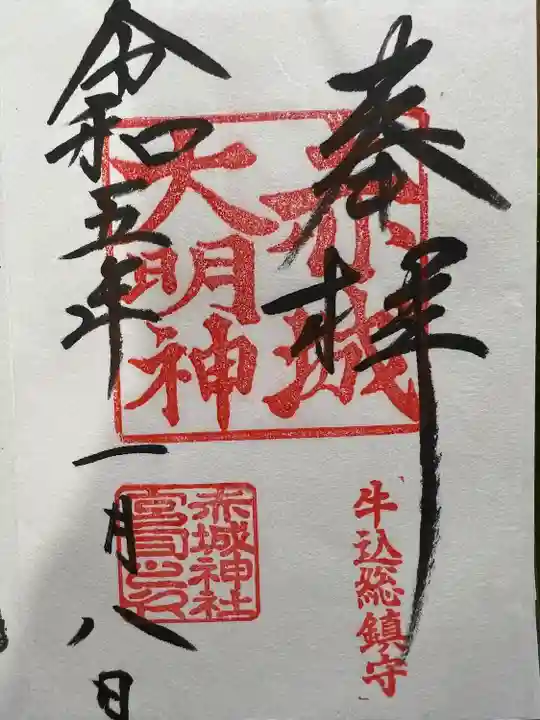 奉拝
赤城
大明神
牛込総鎮守
赤城神社
宮司之印
令和五年一月八日